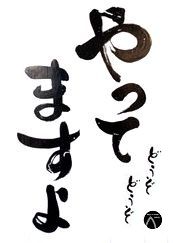 やって
ますよ
どうぞ
どうぞ